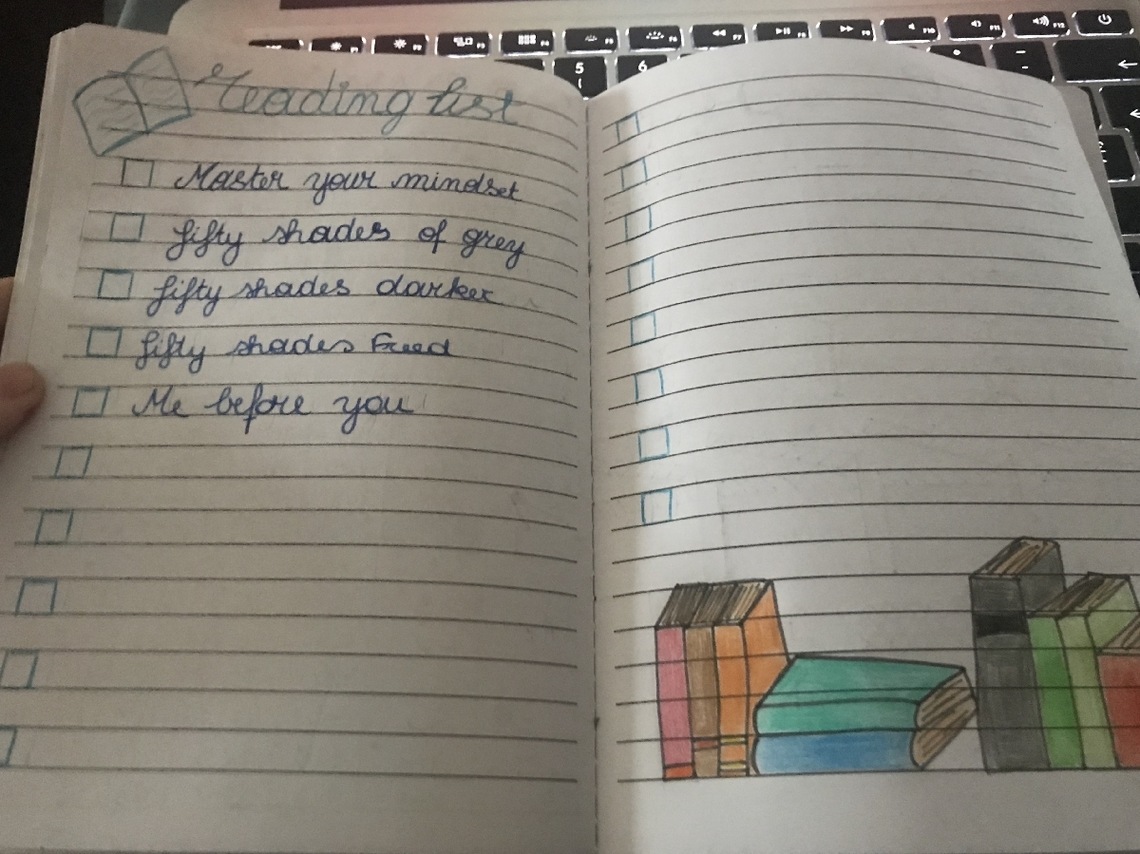 5
6
Reading list
Master your mindset
fifty shades of grey
fifty shades darker
fifty shades Freed
Me before you